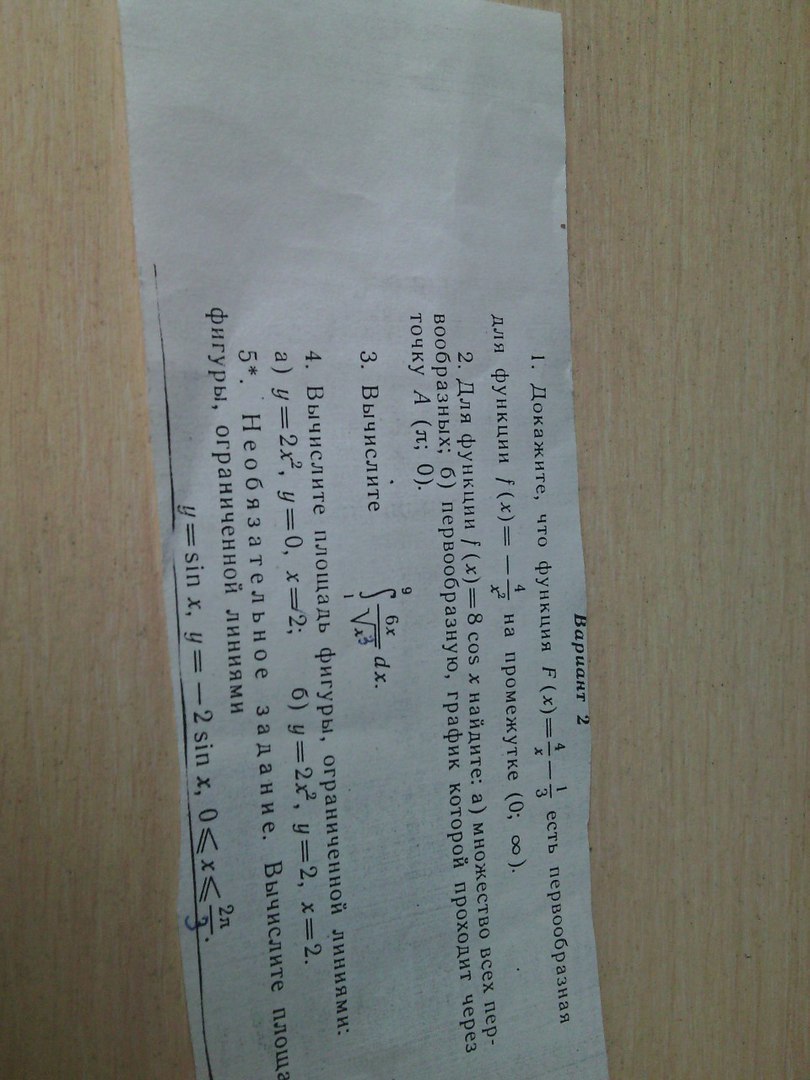 Вариант 2
1. Докажите, что функция F (x) = 4/x − 1/3 есть первообразная
для функции f (x) = − 4/x² на промежутке (0; ∞).
2. Для функции f (x) = 8 cos x найдите: а) множество всех пер-
вообразных; б) первообразную, график которой проходит через
точку A (π; 0).
3. Вычислите
∫₁⁹ 6x/√x³ dx.
4. Вычислите площадь фигуры, ограниченной линиями:
а) y = 2x², y = 0, x = 2; б) y = 2x², y = 2, x = 2.
5*. Необязательное задание. Вычислите площа
фигуры, ограниченной линиями
y = sin x, y = −2 sin x, 0 ⩽ x ⩽ 2π/3.